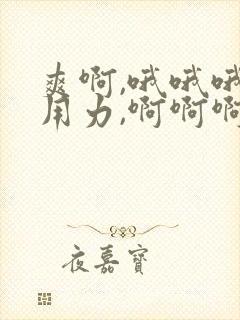 爽啊,哦哦哦
用力,啊啊啊
夜嘉寶